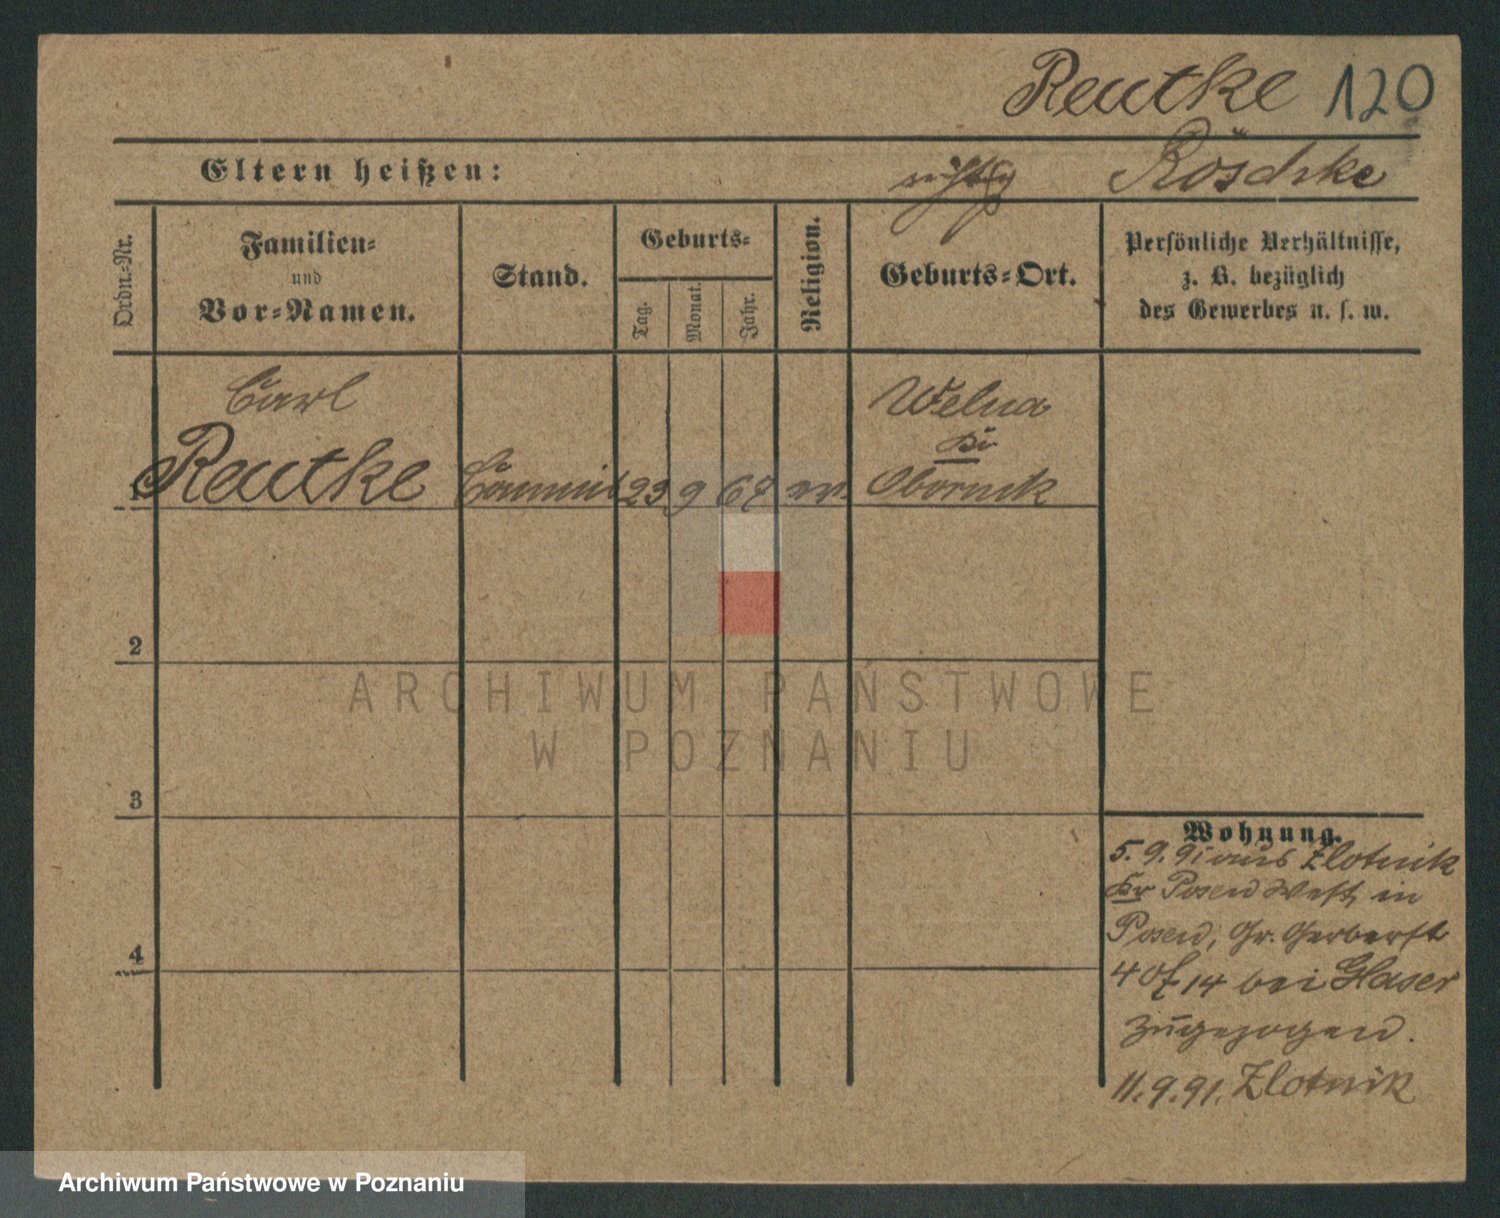 Reutke 120
Eltern heißen: richtig Röschke
Ordn.=Nr.
Familien=
und
Vor=Namen.
Stand.
Geburts=
Tag.
Monat.
Jahr.
Religion.
Geburts=Ort.
Persönliche Verhältnisse,
z. B. bezüglich
des Gewerbes u. s. w.
Carl
Reutke
1
Commis
23
9
67
ev.
Welna
Kr
Obornik
2
3
4
ARCHIWUM PAŃSTWOWE
W POZNANIU
Wohnung.
5. 9. 91 aus Zlotnik
Kr Posen West, in
Posen, Gr. Gerberst
40 14 bei Glaser
zugezogen.
11. 9. 91. Zlotnik
Archiwum Państwowe w Poznaniu